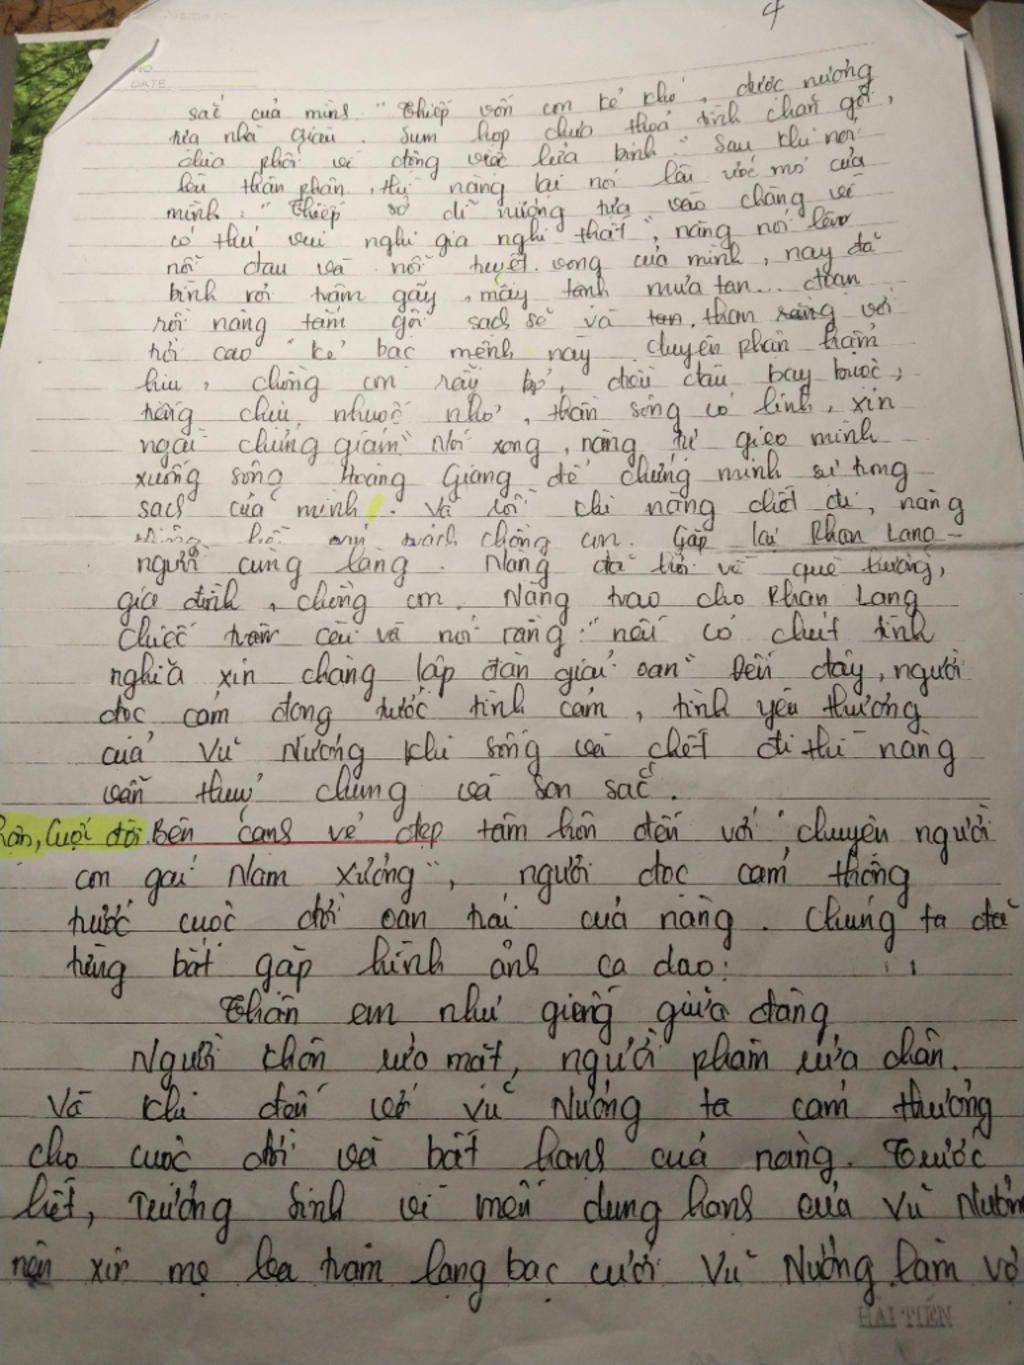 4
NO.
DATE
sắc của mình "Thiếp vốn con kẻ khó, được nương
tựa nhà giàu. Sum họp chưa thoả tình chăn gối,
chia phôi vì động việc lửa binh." Sau khi nói
lên thân phận, thì nàng lại nói lên ước mơ của
mình: "Thiếp sở dĩ nương tựa vào chàng vì
có thú vui nghi gia nghi thất", nàng nói lên
nỗi đau và nỗi tuyệt vọng của mình, nay đã
bình rơi trâm gãy, mây tạnh mưa tan... đoạn
rồi nàng tắm gội sạch sẽ và than rằng với
trời cao "kẻ bạc mệnh này duyên phận hẩm
hiu, chồng con rẫy bỏ, điều đâu bay buộc,
tiếng chịu nhuốc nhơ, thần sông có linh, xin
ngài chứng giám" Nói xong, nàng tự gieo mình
xuống sông Hoàng Giang để chứng minh sự trong
sạch của mình. Và rồi khi nàng chết đi, nàng
trách chồng con. Gặp lại Phan Lang -
người cùng làng. Nàng đã hỏi về quê hương,
gia đình, chồng con. Nàng trao cho Phan Lang
chiếc trâm cài và nói rằng: "nếu có chút tình
nghĩa xin chàng lập đàn giải oan" Đến đây, người
đọc cảm động trước tình cảm, tình yêu thương
của Vũ Nương khi sống và chết đi thì nàng
vẫn thuỷ chung và son sắc.
hận, Cuộc đời. Bên cạnh vẻ đẹp tâm hồn đến với "chuyện người
con gái Nam Xương", người đọc cảm thông
trước cuộc đời oan trái của nàng. Chúng ta đã
từng bắt gặp hình ảnh ca dao:
Thân em như giếng giữa đàng
Người khôn rửa mặt, người phàm rửa chân.
Và khi đến với Vũ Nương ta cảm thương
cho cuộc đời và bất hạnh của nàng. Trước
hết, Trương Sinh vì mến dung hạnh của Vũ Nương
nên xin mẹ trăm lạng bạc cưới Vũ Nương làm vợ
HẢI TIẾN